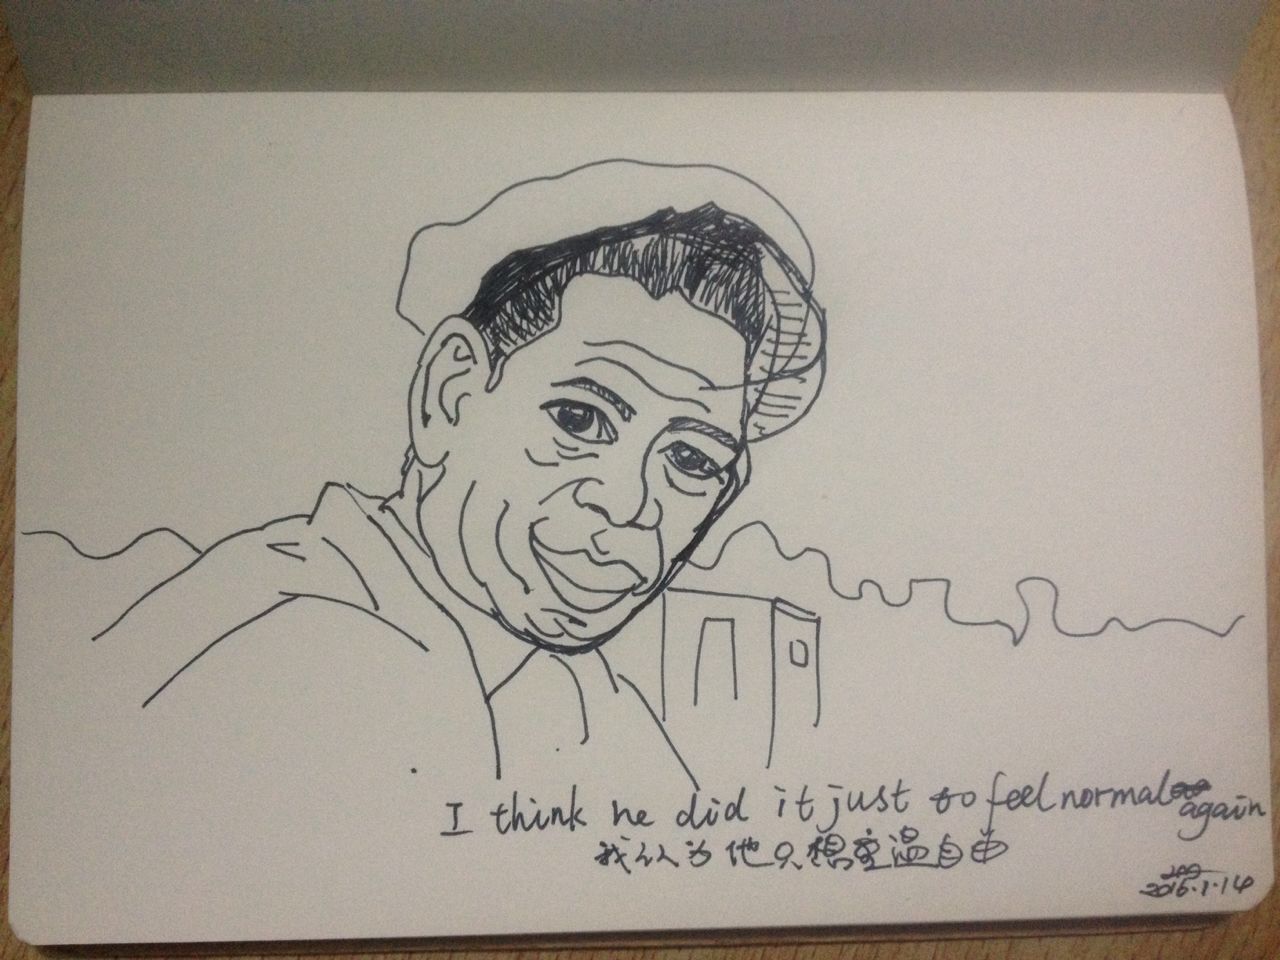 I think he did it just to feel normal again
我认为他只想重温自由
2016.1.14